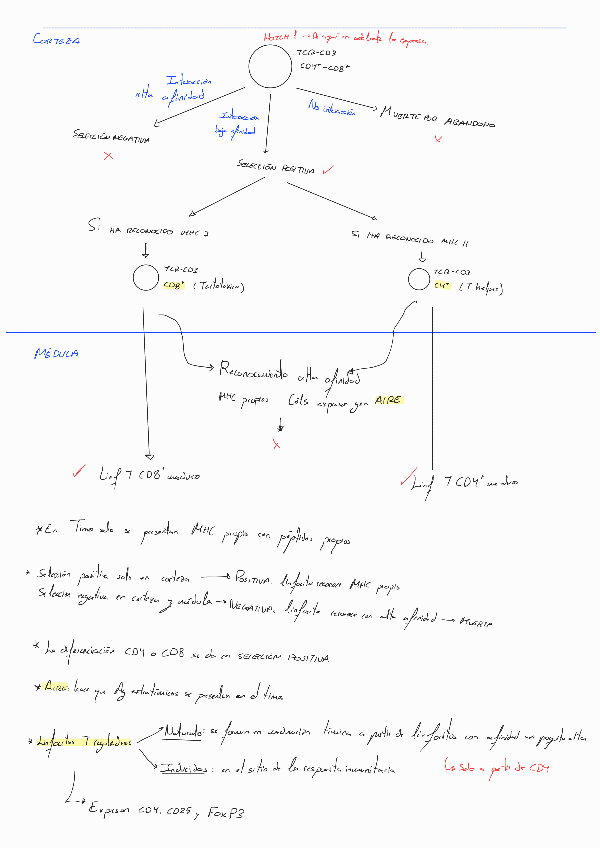 CORTEZA
NOTCH 1 →
TCR-CD3
CD4⁺-CD8⁺
Interacción
alta afinidad
Interacción
baja afinidad
No interacción
MUERTE POR ABANDONO
SELECCIÓN NEGATIVA
SELECCIÓN POSITIVA
Si HA RECONOCIDO MHC I
Si HA RECONOCIDO MHC II
TCR-CD3
CD8⁺ (T citotóxico)
TCR-CD3
CD4⁺ (T helper)
MÉDULA
Reconocimiento alta afinidad
MHC propios Céls expresan gen AIRE
Linf T CD8⁺ maduro
Linf T CD4⁺ maduro
* En Timo solo se presentan MHC propio con péptidos propios
* Selección positiva solo en corteza → POSITIVA: linfocito reconoce MHC propio
Selección negativa en corteza y médula → NEGATIVA: linfocito reconoce con alta afinidad → MUERTE
* La diferenciación CD4 o CD8 se da en SELECCIÓN POSITIVA
* AIRE: hace que Ag extratímicos se presenten en el timo
* Linfocitos T reguladores
Naturales: se forman en maduración tímica a partir de linfocitos con afinidad un poquito alta
Inducidos: en el sitio de la respuesta inmunitaria
Solo a partir de CD4
→ Expresan CD4, CD25 y FoxP3